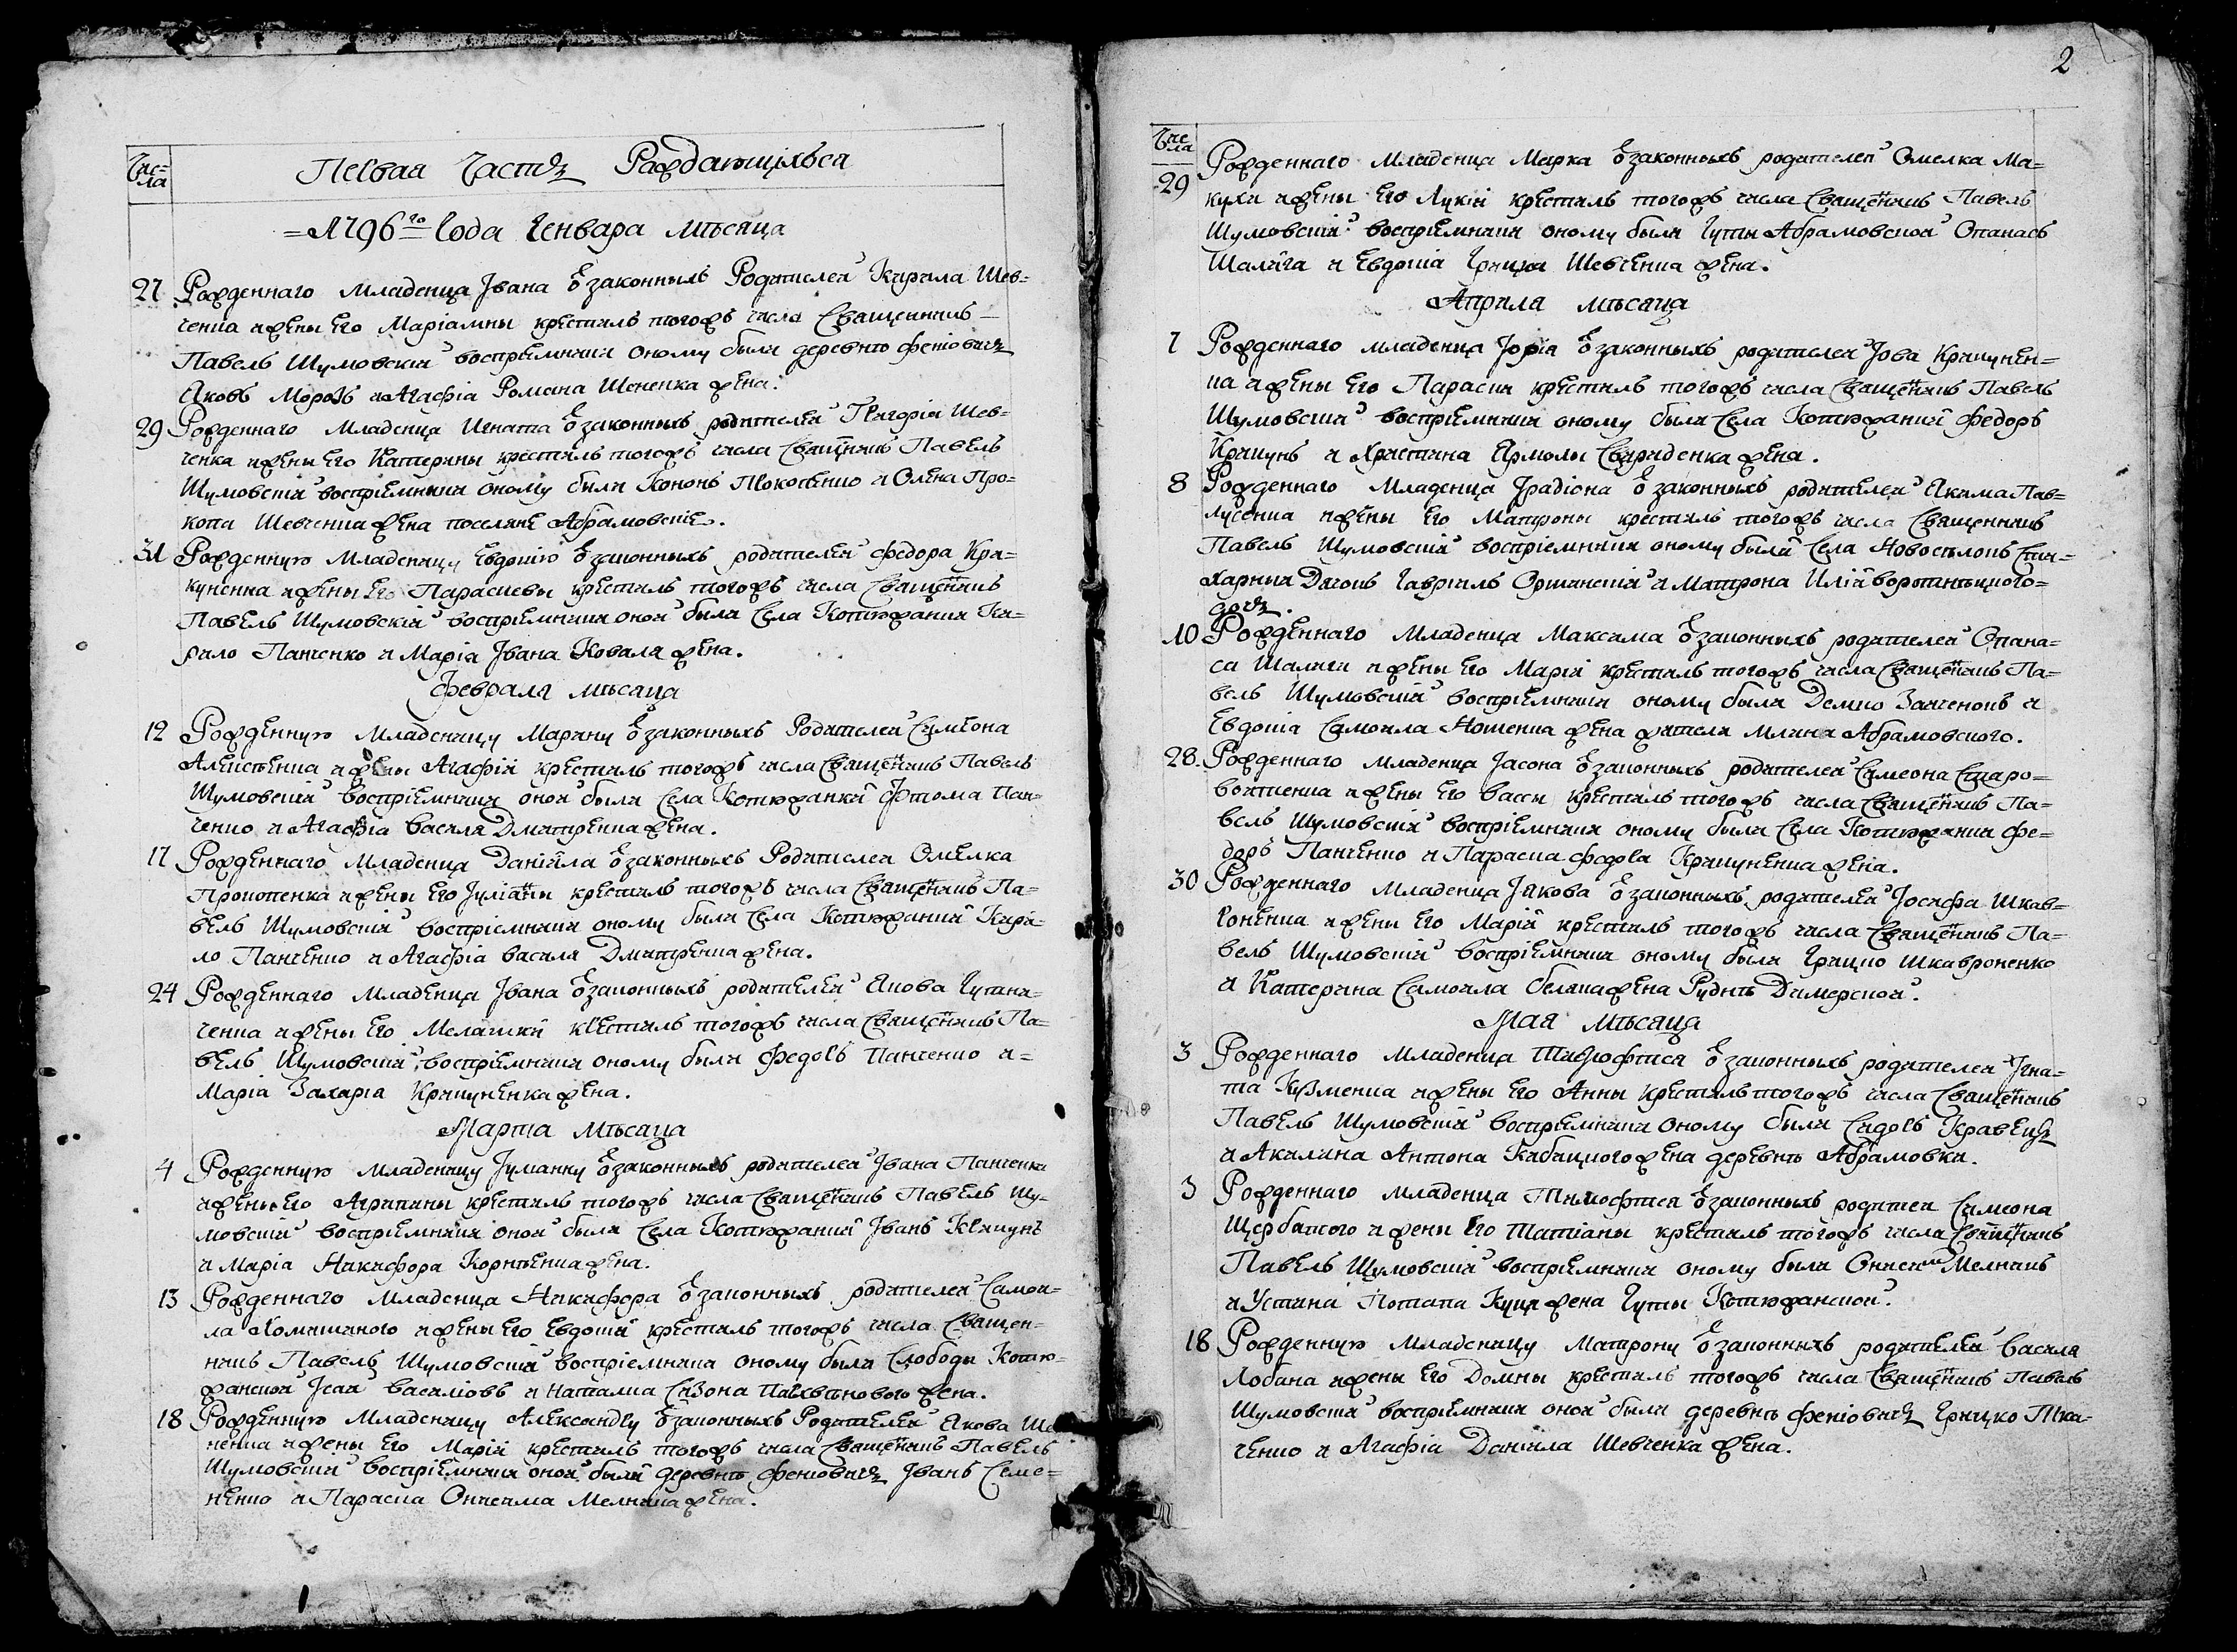 Чис=
ла
Первая Часть Раждающихъся
=1796го Года Генвара мѣсяца
27 Рожденнаго Младенца Івана ѿ законныхъ Родителей Кирила Шев=
ченка и жены его Маріамны крестилъ тогожъ числа Священникъ
Павелъ Шумовскій воспріемники оному были деревнѣ Феніовичъ
Яковъ Морозъ и Агафія Романа Шененка жена.
29 Рожденнаго Младенца Игната ѿ законныхъ родителей Григорія Шев=
ченка и жены его Катерины крестилъ тогожъ числа Священикъ Павелъ
Шумовскій воспріемники оному были Кононъ Прокопенко и Олена Про=
копа Шевченка жена поселяне Абрамовскіе.
31 Рожденную Младеницу Евдокію ѿ законныхъ родителей Федора Кра=
куненка и жены его Парасковы крестилъ тогожъ числа Священикъ
Павелъ Шумовскій воспріемники оной были Села Котюжанки Ки=
рило Панченко и Марія Івана Коваля жена.
Февраля мѣсяца
12 Рожденную Младеницу Марину ѿ законныхъ Родителей Симеона
Алексѣенка и жены Агафіи крестилъ тогожъ числа Священикъ Павелъ
Шумовскій воспріемники оной были Села Котюжанки Фтома Пан=
ченко и Агафія Василя Дмитренка жена.
17 Рожденнаго Младенца Даніила ѿ законныхъ Родителей Омелка
Прокопенка и жены его Іуліаны крестилъ тогожъ числа Священикъ Па=
велъ Шумовскій воспріемники оному были Села Котюжанки Кири=
ло Панченко и Агафія Василя Дмитренка жена.
24 Рожденнаго Младенца Івана ѿ законныхъ родителей Якова Гутни=
ченка и жены его Мелашки крестилъ тогожъ числа Священикъ Па=
велъ Шумовскій воспріемники оному были Федоръ Панченко и=
Марія Захарія Крикуненка жена.
Марта мѣсяца
4 Рожденную Младеницу Іулианну ѿ законныхъ родителей Івана Панченка
и жены его Агрипины крестилъ тогожъ числа Священикъ Павелъ Шу=
мовскій воспріемники оной были Села Котюжанки Іванъ Крикунъ
и Марія Никифора Корнѣенка жена.
13 Рожденнаго Младенца Никифора ѿ законныхъ родителей Самои=
ла Хомишиного и жены его Евдокіи крестилъ тогожъ числа Священ=
никъ Павелъ Шумовскій воспріемники оному были Слободы Котю=
жанской Ісай Василіовъ и Наталиа Сизона жена.
18 Рожденную Младеницу Александру ѿ законныхъ Родителей Якова Ше
ненка и жены его Маріи крестилъ тогожъ числа Священикъ Павелъ
Шумовскій воспріемники оной были деревнѣ Феніовичъ Іванъ Семе=
ненко и Параска Онисима Мелника жена.
2
Чис
ла
29 Рожденнаго Младенца Марка ѿ законныхъ родителей Омелка Ма=
кухи и жены его Лукіи крестилъ тогожъ числа Священикъ Павелъ
Шумовскій воспріемники оному были Гуты Абрамовской Опанасъ
Шалига и Евдокія Грицка Шевченка жена.
Априла мѣсяца
7 Рожденнаго младенца Јорія ѿ законныхъ родителей Јова Крикунен=
ка и жены его Параски крестилъ тогожъ числа Священикъ Павелъ
Шумовскій воспріемники оному были Села Котюжанки Федоръ
Крикунъ и Христина Ярмолы Свириденка жена.
8 Рожденнаго Младенца Ірадіона ѿ законныхъ родителей Якима Пав=
лусенка и жены его Матроны крестилъ тогожъ числа Священникъ
Павелъ Шумовскій воспріемники оному были Села Новоселокъ Сти=
харный Дячокъ Гавріилъ Оржанскій и Матрона Иліи воротнѣцкого=
дочъ.
10 Рожденнаго Младенца Максима ѿ законныхъ родителей Опана=
са Шалиги и жены его Маріи крестилъ тогожъ числа Священикъ Па=
велъ Шумовскій воспріемники оному были Демко Заиченокъ и
Евдокиа Самоила Ношенка жена жители млина Абрамовского.
28. Рожденнаго Младенца Јасона ѿ законныхъ родителей Симеона Старо=
войтенка и жены его Вассы крестилъ тогожъ числа Священикъ Па=
велъ Шумовскій воспріемники оному были Села Котюжанки Фе=
доръ Панченко и Параска Федора Крикуненка жена.
30 Рожденнаго Младенца Іякова ѿ законныхъ родителей Іосифа Шкав=
роненка и жены его Маріи крестилъ тогожъ числа Священикъ Па=
велъ Шумовскій воспріемники оному были Грицко Шкавроненко
и Катерина Самоила Беляка жена Руднѣ Димерской.
Мая мѣсяца
3 Рожденнаго Младенца ѿ законныхъ родителей Ігна=
та Кузменка и жены его Анны крестилъ тогожъ числа Священикъ
Павелъ Шумовскій воспріемники оному были Сидоръ Кравецъ
и Акилина Антона Кабацкого жена деревнѣ Абрамовки.
3 Рожденнаго младенца Тимофтея ѿ законныхъ родител Симеона
Щербатого и жены его Татіаны крестилъ тогожъ числа Священикъ
Павелъ Шумовскій воспріемники оному были Онисим Мелникъ
и Устина Потапа Куци жена Гуты Котюжанской.
18 Рожденную Младеницу Матрону ѿ законныхъ родителей Василя
Лобана и жены его Домны крестилъ тогожъ числа Священикъ Павелъ
Шумовскій воспріемники оной были деревнѣ Феніовичъ Грицко Тка=
ченко и Агафія Даниила Шевченка жена.